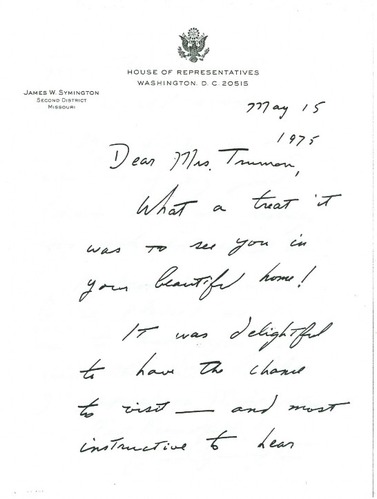 HOUSE OF REPRESENTATIVES
WASHINGTON, D. C. 20515
JAMES W. SYMINGTON
SECOND DISTRICT
MISSOURI
May 15
1975
Dear Mrs. Truman,
What a treat it
was to see you in
your beautiful home!
It was delightful
to have the chance
to visit — and most
instructive to hear